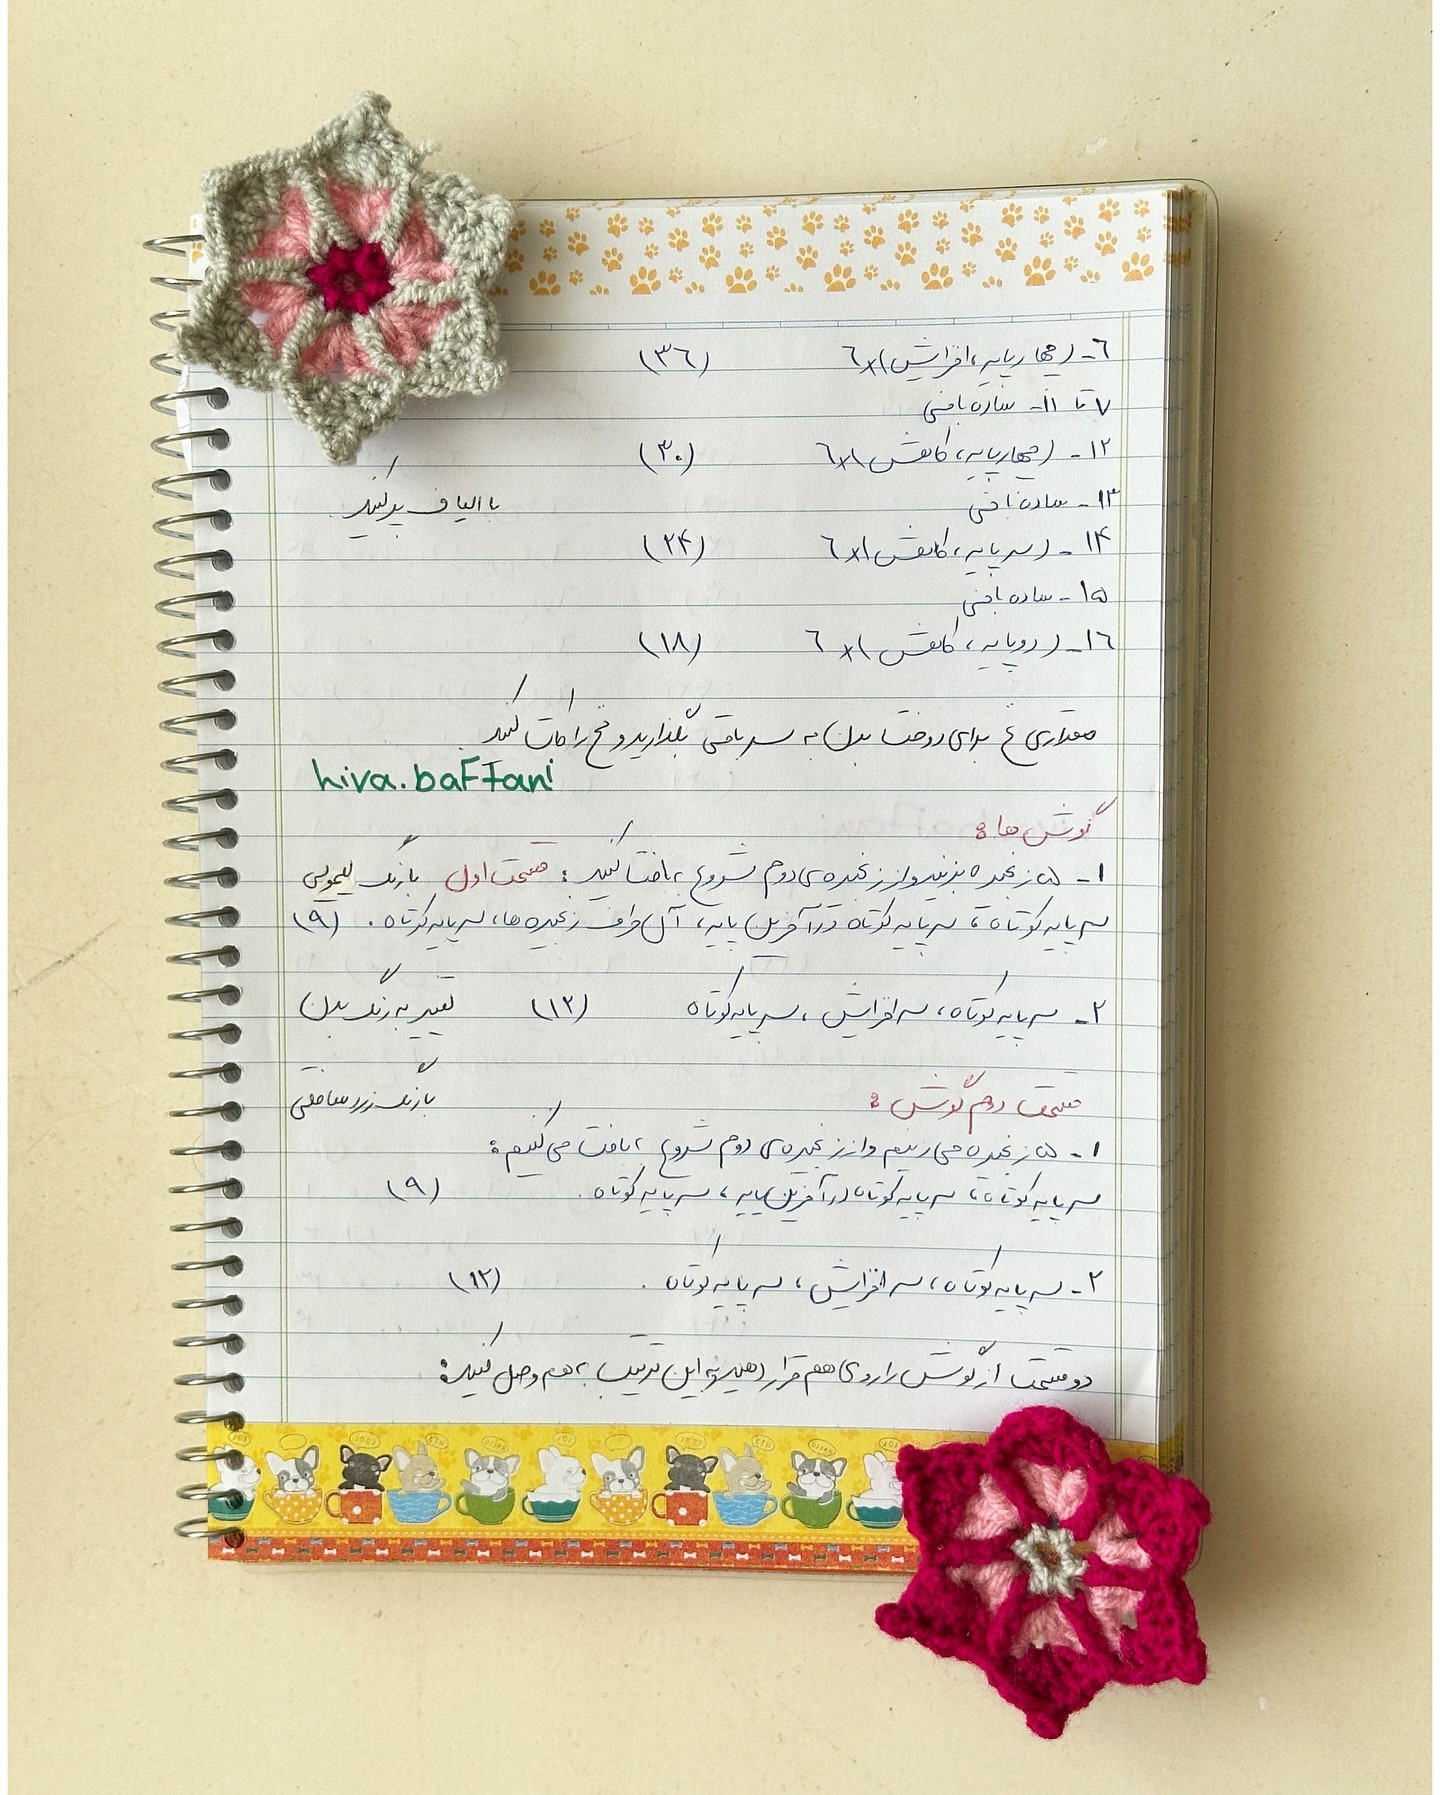 ٦- (چهارپایه، افزایش)×٦ (٣٦)
٧ تا ١١- ساده بافی
١٢- (چهارپایه، کاهش)×٦ (٣٠)
١٣- ساده بافی با الیاف پر کنید.
١۴- (سه پایه، کاهش)×٦ (٢۴)
١۵- ساده بافی
١٦- (دوپایه، کاهش)×٦ (١٨)
مقداری نخ برای دوخت بدن به سر باقی بگذارید و نخ را کات کنید.
hiva.baftani
گوش ها:
١- ۵ زنجیره بزنید و از زنجیره‌ی دوم شروع به بافت کنید: قسمت اول با رنگ لیمویی
سه پایه کوتاه، سه پایه کوتاه در آخرین پایه، آن طرف زنجیره ها، سه پایه کوتاه. (٩)
٢- سه پایه کوتاه، سه افزایش، سه پایه کوتاه (١٢) تغییر به رنگ بدن
قسمت دوم گوش: با رنگ زرد
١- ۵ زنجیره می زنیم و از زنجیره‌ی دوم شروع به بافت می کنیم:
سه پایه کوتاه، سه پایه کوتاه در آخرین پایه، سه پایه کوتاه. (٩)
٢- سه پایه کوتاه، سه افزایش، سه پایه کوتاه. (١٢)
دو قسمت از گوش را روی هم قرار دهید و به این ترتیب به هم وصل کنید: